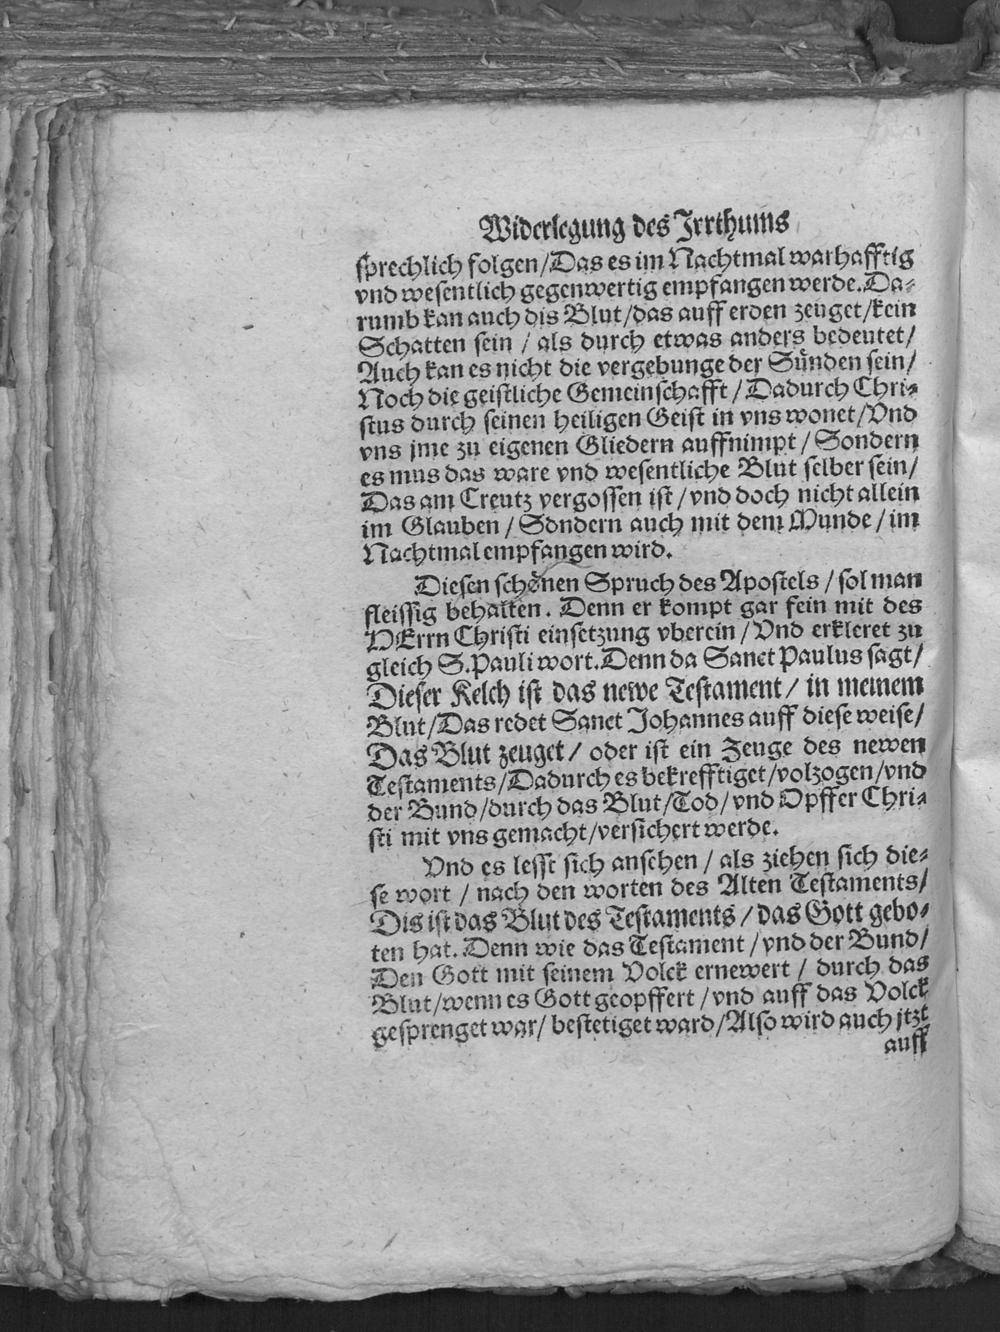 Widerlegung des Irrthums
sprechlich folgen/Das es im Nachtmal warhafftig
vnd wesentlich gegenwertig empfangen werde. Da-
rumb kan auch dis Blut/das auff erden zeuget/kein
Schatten sein / als durch etwas anders bedeutet/
Auch kan es nicht die vergebunge der Sünden sein/
Noch die geistliche Gemeinschafft / Dadurch Chri-
stus durch seinen heiligen Geist in vns wonet/Vnd
vns jme zu eigenen Gliedern auffnimpt / Sondern
es mus das ware vnd wesentliche Blut selber sein/
Das am Creutz vergossen ist / vnd doch nicht allein
im Glauben / Sondern auch mit dem Munde / im
Nachtmal empfangen wird.
Diesen schönen Spruch des Apostels / sol man
fleissig behalten. Denn er kompt gar fein mit des
HErrn Christi einsetzung vberein / Vnd erkleret zu
gleich S. Pauli wort. Denn da Sanct Paulus sagt/
Dieser Kelch ist das newe Testament / in meinem
Blut/Das redet Sanct Johannes auff diese weise/
Das Blut zeuget / oder ist ein Zeuge des newen
Testaments/Dadurch es bekrefftiget/volzogen/vnd
der Bund/durch das Blut/Tod/vnd Opffer Chri-
sti mit vns gemacht/versichert werde.
Vnd es lesst sich ansehen / als ziehen sich die-
se wort / nach den worten des Alten Testaments/
Dis ist das Blut des Testaments / das Gott gebo-
ten hat. Denn wie das Testament / vnd der Bund/
Den Gott mit seinem Volck ernewert / durch das
Blut/wenn es Gott geopffert / vnd auff das Volck
gesprenget war/ bestetiget ward/Also wird auch jtzt
auff